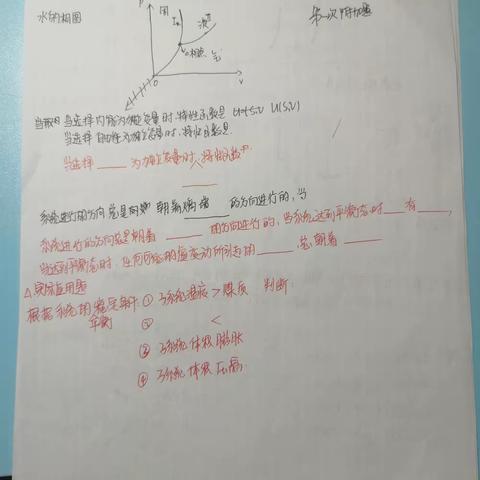 水的相图
第一次附加题
P
固
液
气
三相点
O
V
当选择内能为独立变量时,特性函数是 U(S,V)
当选择自由能为独立变量时,特性函数是
当选择 ____ 为独立变量时,特性函数
系统进行的方向总是向 朝着熵增 的方向进行的,当
系统进行的方向总是朝着 ____ 的方向进行的,当系统达到平衡态时 ____ 有 ____,
当达到平衡态时,任何可能的虚变动所引起的 ____ 总朝着 ____
△实际应用题
根据系统的稳定条件 ① 子系统温度 > 媒质 判断
平衡 ② <
③ 子系统体积膨胀
④ 子系统体积压缩